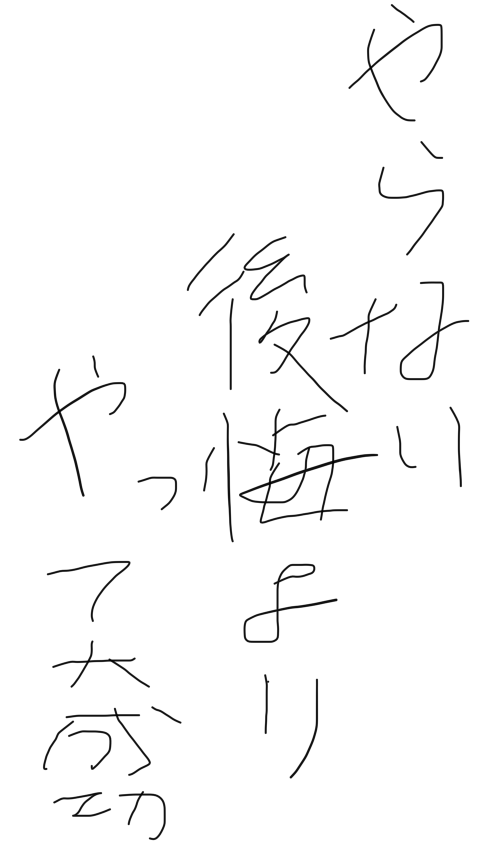 やらない
後悔より
やって大成功